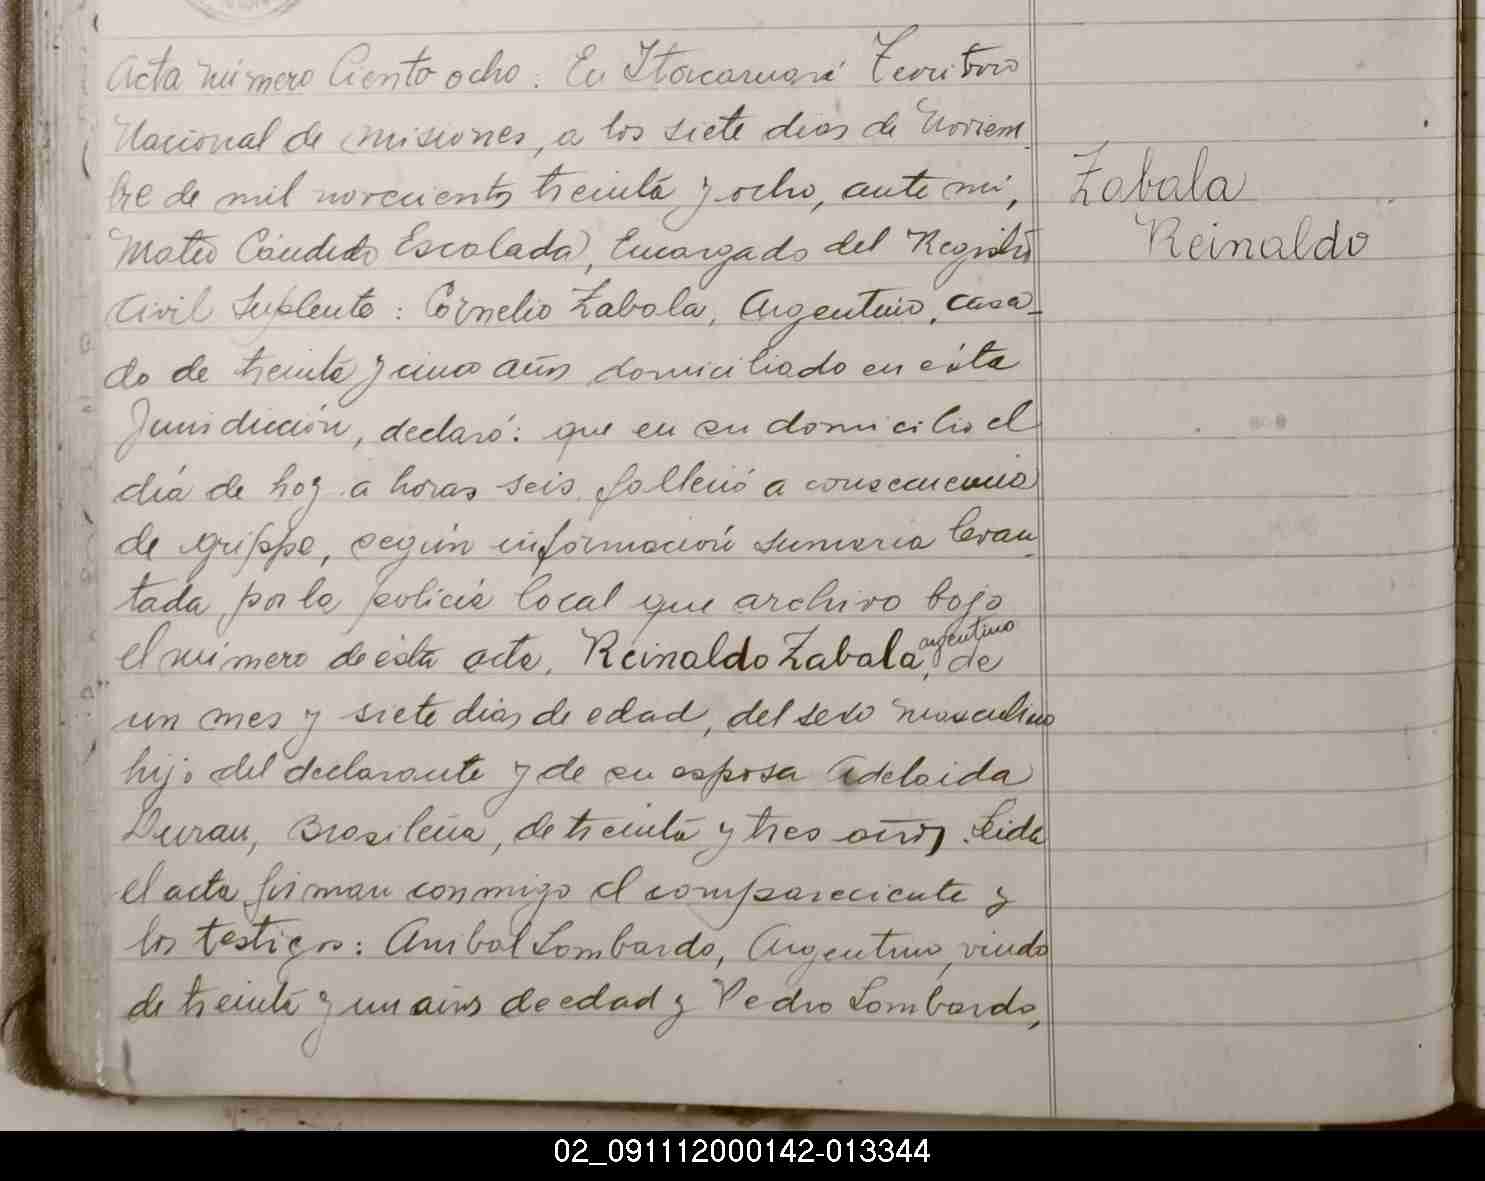 Acta número Ciento ocho: En Itacaruaré Territorio
Nacional de Misiones, a los siete dias de Noviem-
bre de mil novecientos treinta y ocho, ante mi,
Mateo Cándido Escalada, Encargado del Registro
Civil Suplente: Cornelio Zabala, Argentino, casa-
do de treinta y cinco años domiciliado en ésta
Jurisdicción, declaró: que en su domicilio el
día de hoy a horas seis falleció a consecuencia
de grippe, según información sumaria levan-
tada por la policía local que archivo bajo
el número de ésta acta, Reinaldo Zabala, argentino de
un mes y siete dias de edad, del sexo masculino
hijo del declarante y de su esposa Adelaida
Duran, Brasileña, de treinta y tres años. Leida
el acta firman conmigo el compareciente y
los testigos: Anibal Lombardo, Argentino, viudo
de treinta y un años de edad y Pedro Lombardo,
Zabala
Reinaldo
02_091112000142-013344